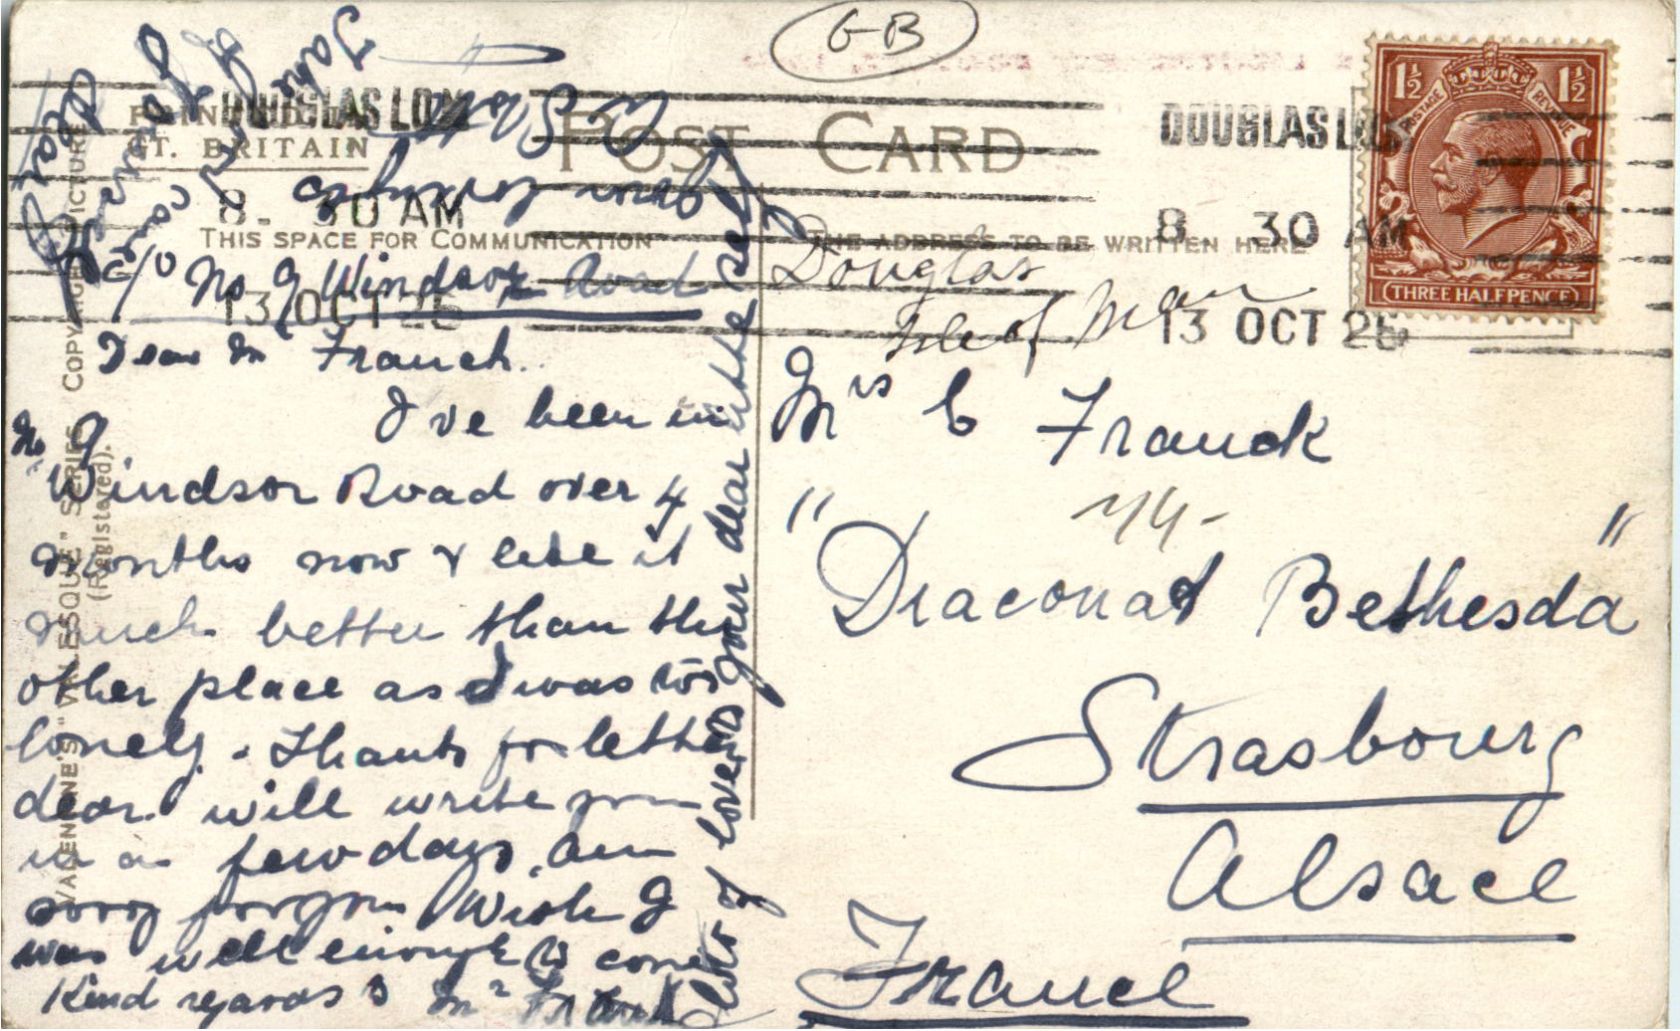 GB
POST CARD
PRINTED IN
GT. BRITAIN
DOUGLAS I.O.M
8. 30 AM
13 OCT 26
DOUGLAS I.O.M
8 30 AM
13 OCT 26
THIS SPACE FOR COMMUNICATION
THE ADDRESS TO BE WRITTEN HERE
POSTAGE REVENUE
1½ 1½
THREE HALFPENCE
VALENTINE'S "VALESQUE" SERIES COPYRIGHT PICTURE
(Registered).
c/o No 9 Windsor Road
Douglas
Isle of Man
Dear Mrs Franck.
I've been in
No 9
Windsor Road over 4
months now & like it
much better than the
other place as I was too
lonely. Thanks for letter
dear. will write you
in a few days. Am
sorry for you Wish I
was well enough to come
Kind regards to Mr Franck
lots of love to your dear little self
Take care
of
yourself
dear
Mrs C Franck
74-
"Diaconat Bethesda"
Strasbourg
Alsace
France